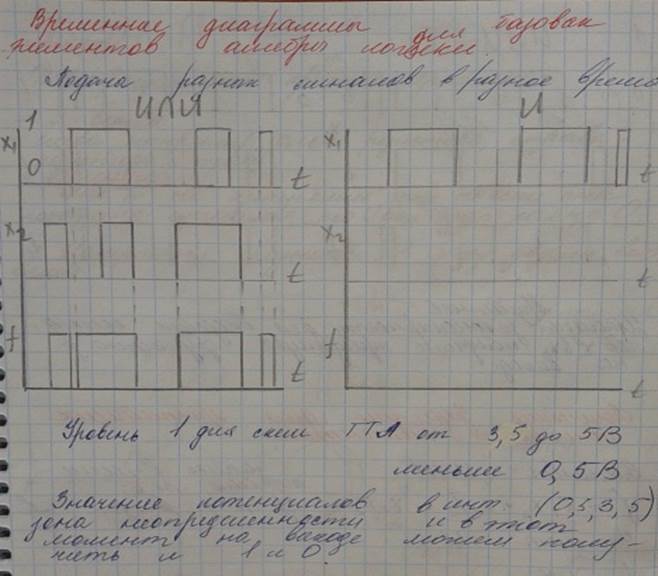 Временние диаграммы для базовах
элементов алгебры логики.
Подача разних сигналов в разное время
ИЛИ И
1
x₁ x₁
0 t t
x₂ x₂
t t
f f
t t
Уровень 1 для схем ТТЛ от 3,5 до 5В
меньше 0,5В
Значение потенциалов в инт. (0,5, 3,5)
зона неопределенности и в этот
момент на выходе можем полу-
чить и 1 и 0